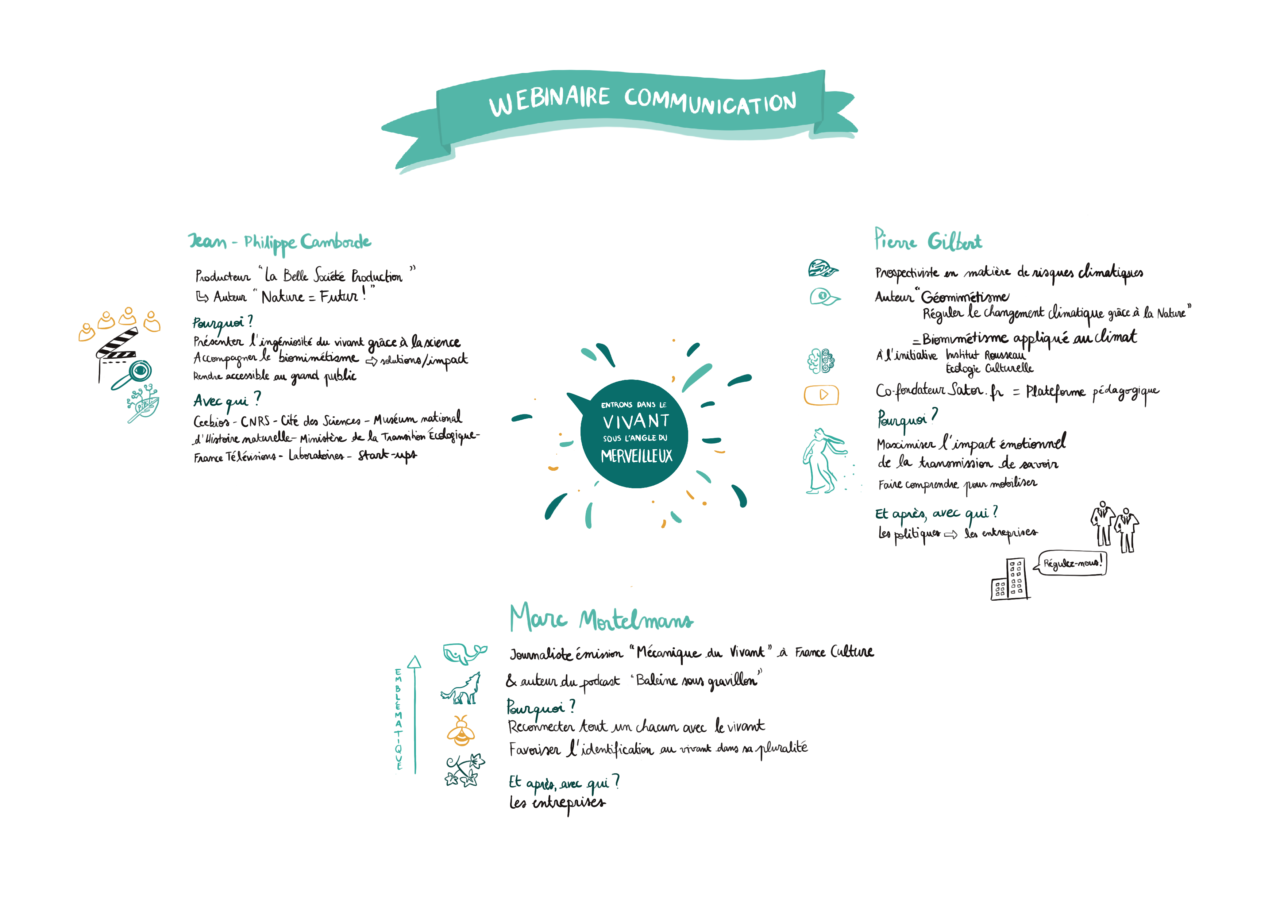 WEBINAIRE COMMUNICATION
Jean-Philippe Camborde
Producteur "La Belle Société Production"
Auteur "Nature = Futur!"
Pourquoi?
Présenter l'ingéniosité du vivant grâce à la science
Accompagner le biomimétisme ⇨ solutions/impact
Rendre accessible au grand public
Avec qui?
Ceebios - CNRS - Cité des Sciences - Muséum national
d'Histoire naturelle - Ministère de la Transition Écologique -
France Télévisions - Laboratoires - Start-ups
ENTRONS DANS LE
VIVANT
SOUS L'ANGLE DU
MERVEILLEUX
Pierre Gilbert
Prospectiviste en matière de risques climatiques
Auteur "Géomimétisme
Réguler le changement climatique grâce à la Nature"
= Biomimétisme appliqué au climat
À l'initiative Institut Rousseau
Écologie Culturelle
Co-fondateur Sator.fr = Plateforme pédagogique
Pourquoi?
Maximiser l'impact émotionnel
de la transmission de savoir
Faire comprendre pour mobiliser
Et après, avec qui?
Les politiques ⇨ les entreprises
Régulez-nous!
Marc Mortelmans
Journaliste émission "Mécanique du Vivant" à France Culture
& auteur du podcast "Baleine sous gravillon"
Pourquoi?
Reconnecter tout un chacun avec le vivant
Favoriser l'identification au vivant dans sa pluralité
Et après, avec qui?
Les entreprises
EMBLÉMATIQUE